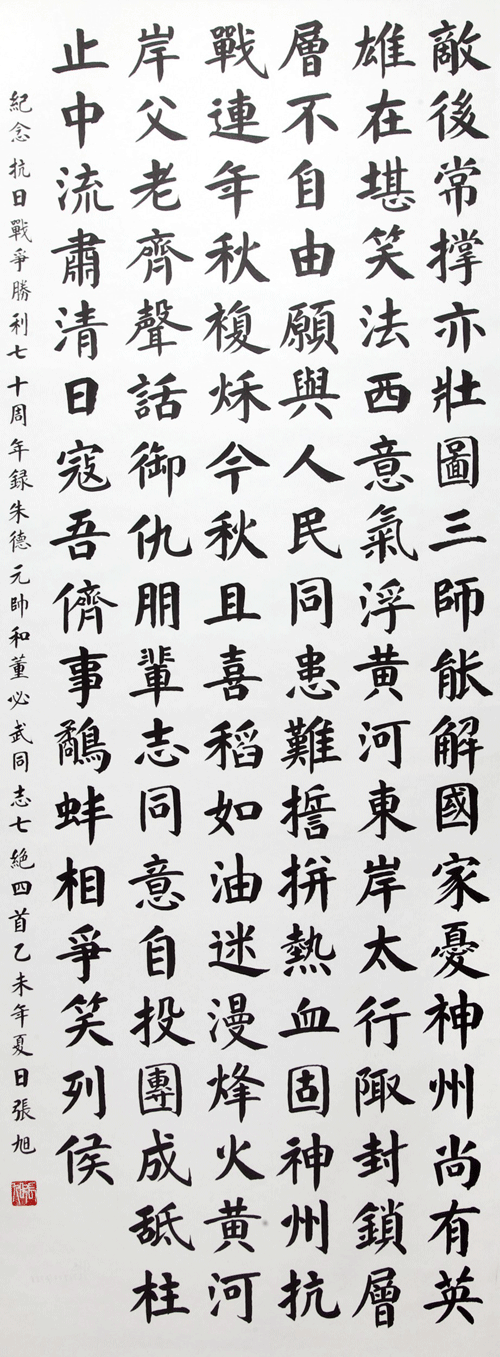 敵後常撑亦壯圖三師能解國家憂神州尚有英
雄在堪笑法西意氣浮黄河東岸太行陬封鎖層
層不自由願與人民同患難誓拚熱血固神州抗
戰連年秋複秌今秋且喜稻如油迷漫烽火黄河
岸父老齊聲話御仇朋輩志同意自投團成砥柱
止中流肅清日寇吾儕事鷸蚌相爭笑列侯
紀念抗日戰爭勝利七十周年録朱德元帥和董必武同志七絶四首乙未年夏日張旭